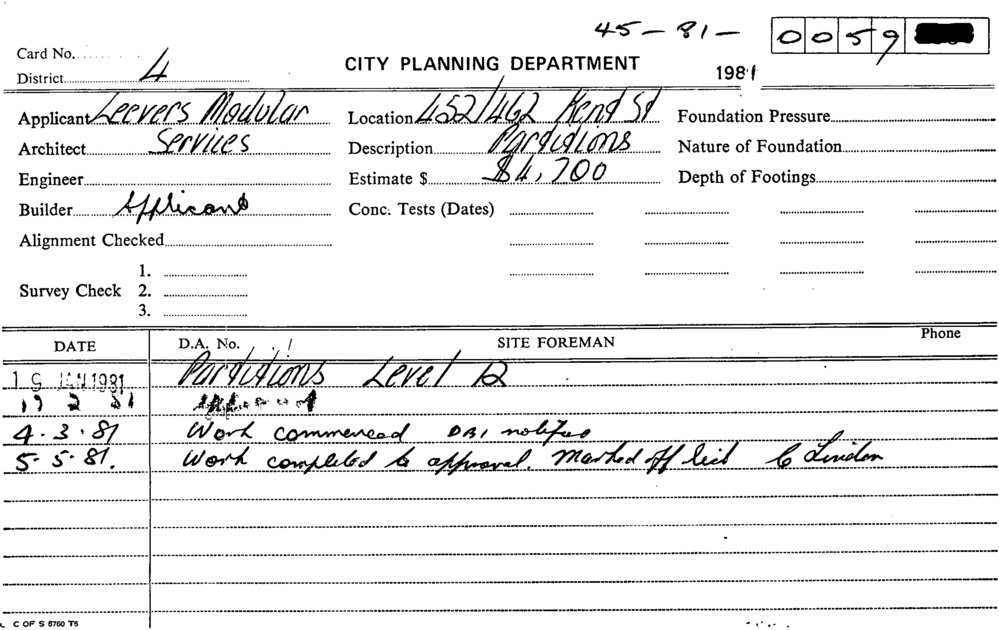 45 - 81 -
0059
Card No.
District 4
CITY PLANNING DEPARTMENT
1981
Applicant Leevers Modular
Location 452/462 Kent St
Foundation Pressure
Architect Services
Description Partitions
Nature of Foundation
Engineer
Estimate $ $4,700
Depth of Footings
Builder Applicant
Conc. Tests (Dates)
Alignment Checked
1.
Survey Check 2.
3.
DATE
D.A. No.
SITE FOREMAN
Phone
19 JAN 1981 Partitions Level 12
2 81
4.3.81 Work commenced DBI notified
5.5.81. Work completed to approval. Marked off list
C OF S 5760 T5